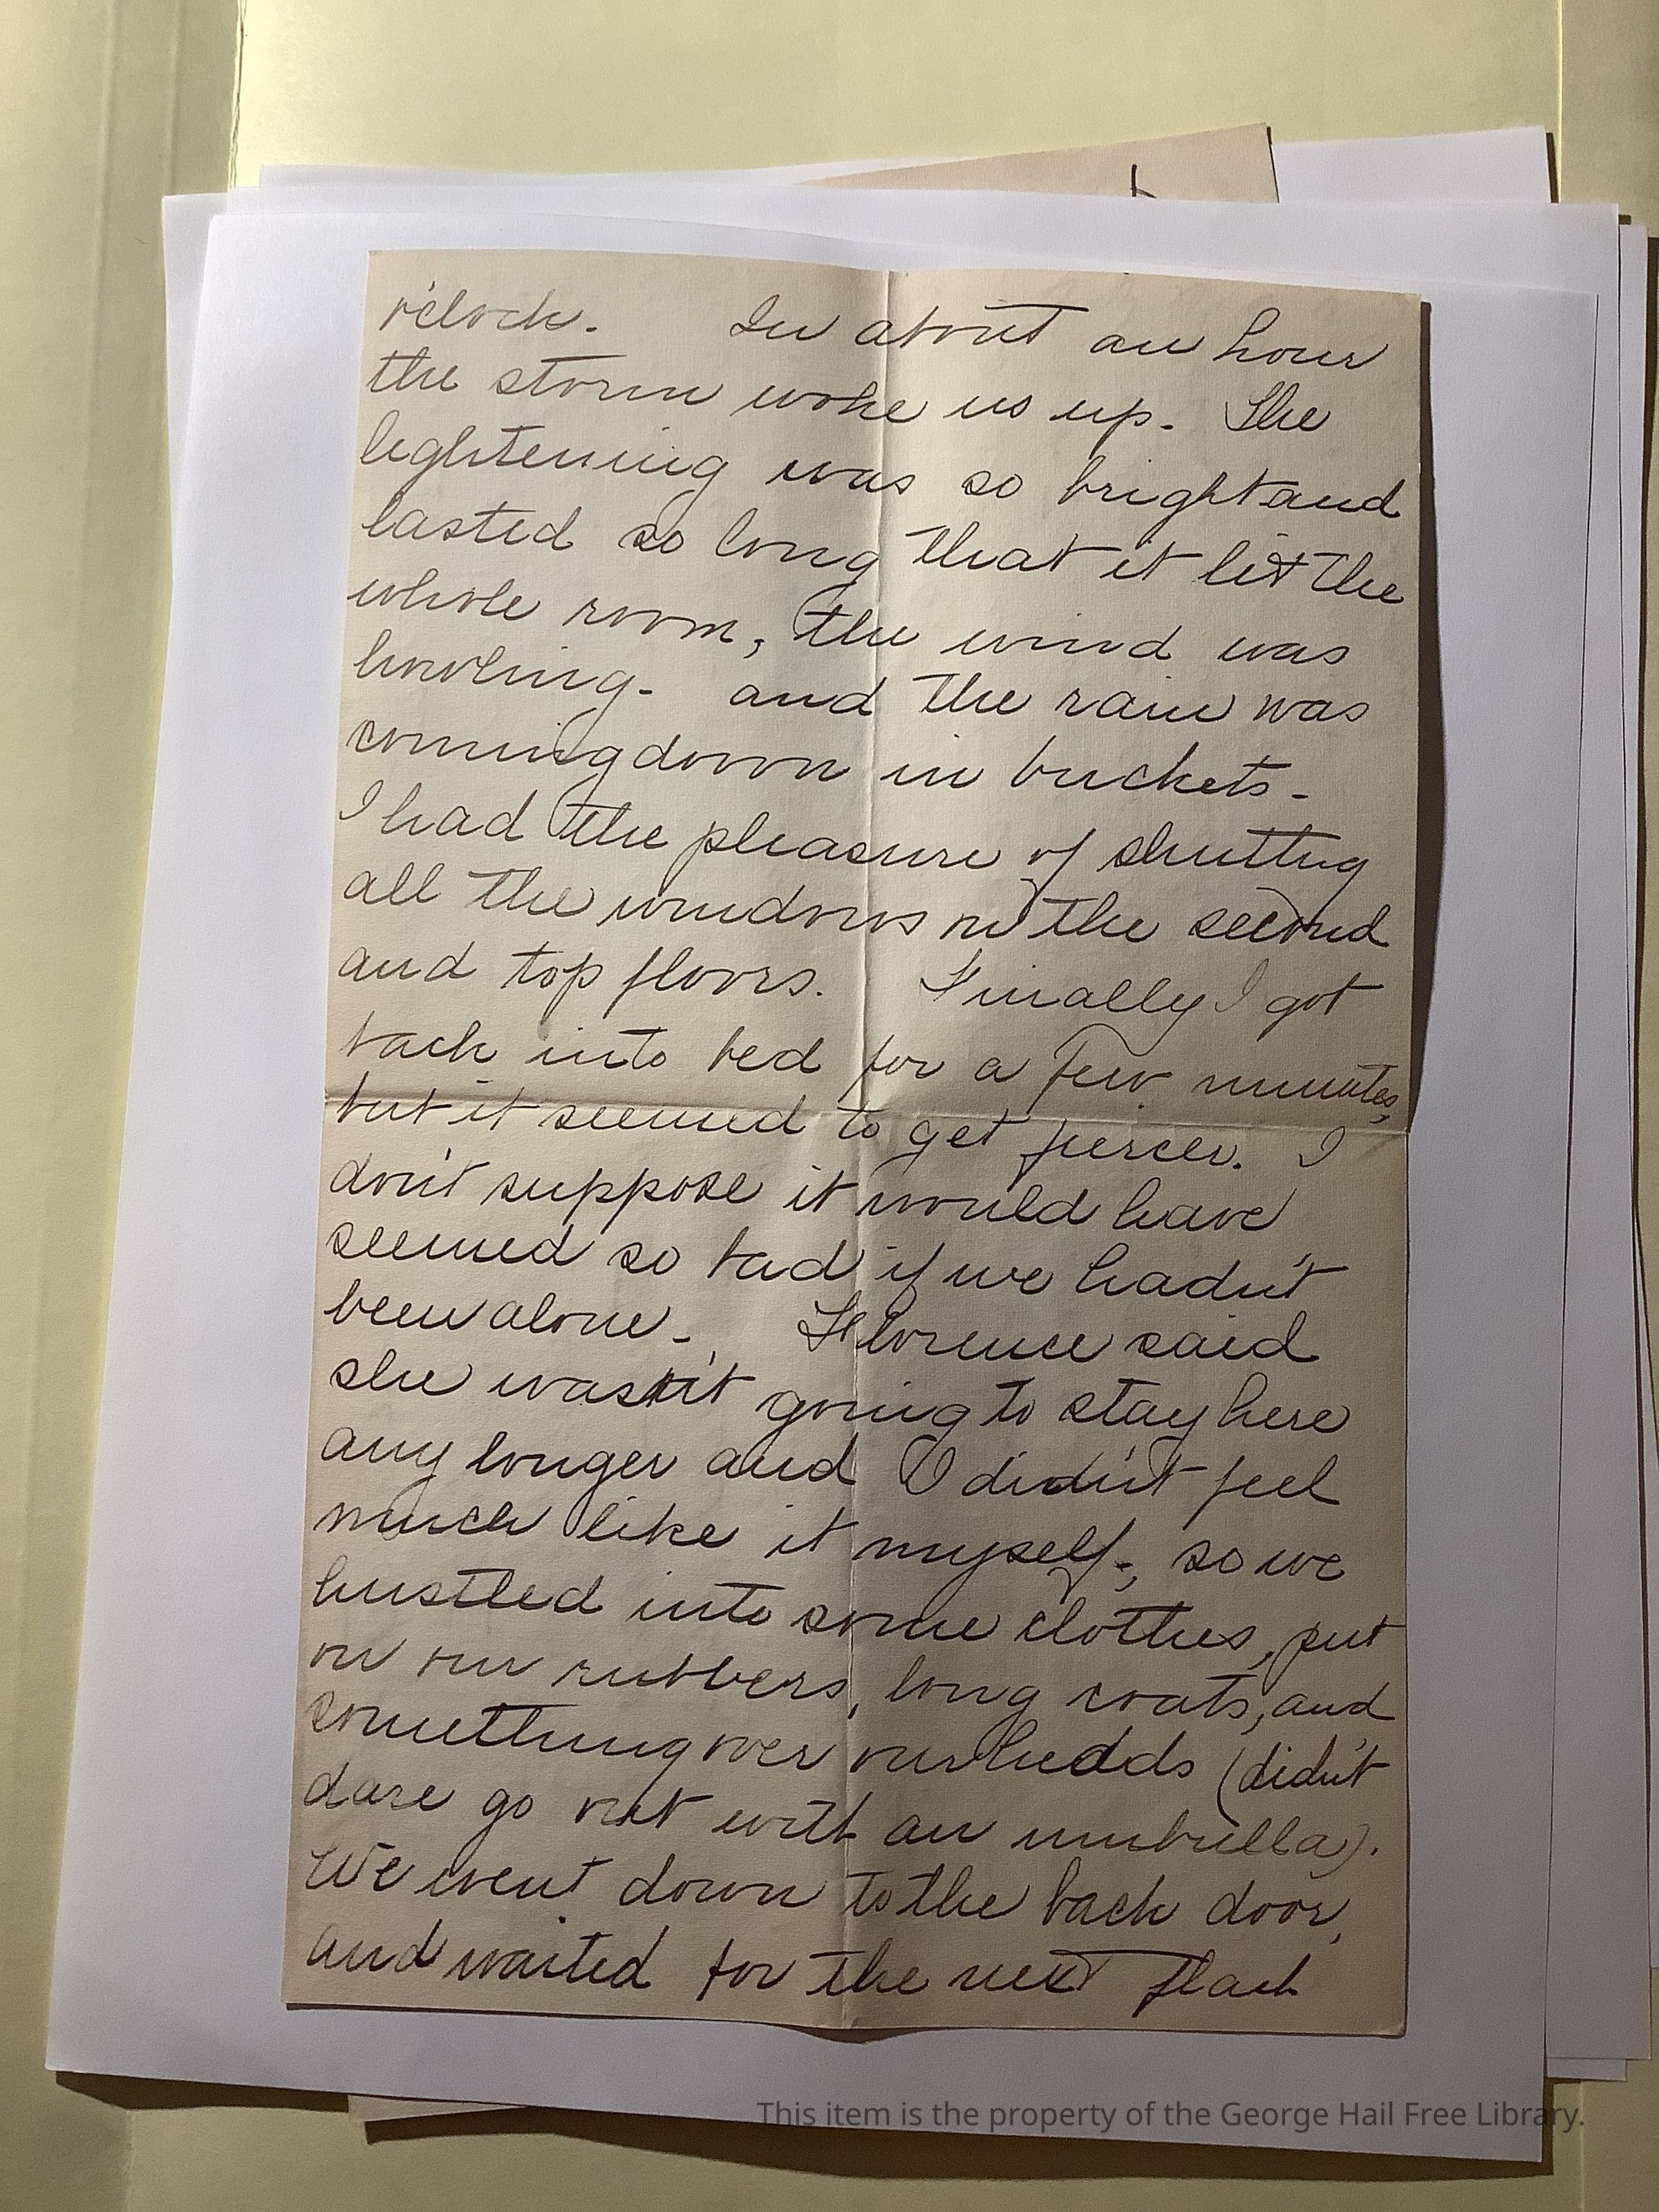 o'clock. In about an hour
the storm woke us up. The
lightening was so bright and
lasted so long that it lit the
whole room, the wind was
howling. and the rain was
coming down in buckets.
I had the pleasure of shuttug
all the windows on the second
and top floors. Finally I got
back into bed for a few minutes,
but it seemed to get fiercer. I
don't suppose it would have
seemed so bad if we hadn't
been alone. Florence said
she wasn't going to stay here
any longer and I didn't feel
much like it myself, so we
hustled into some clothes, put
on our rubbers, long coats, and
something over our heads (didn't
dare go out with an umbrella).
We went down to the back door,
and waited for the next flash
This item is the property of the George Hail Free Library.